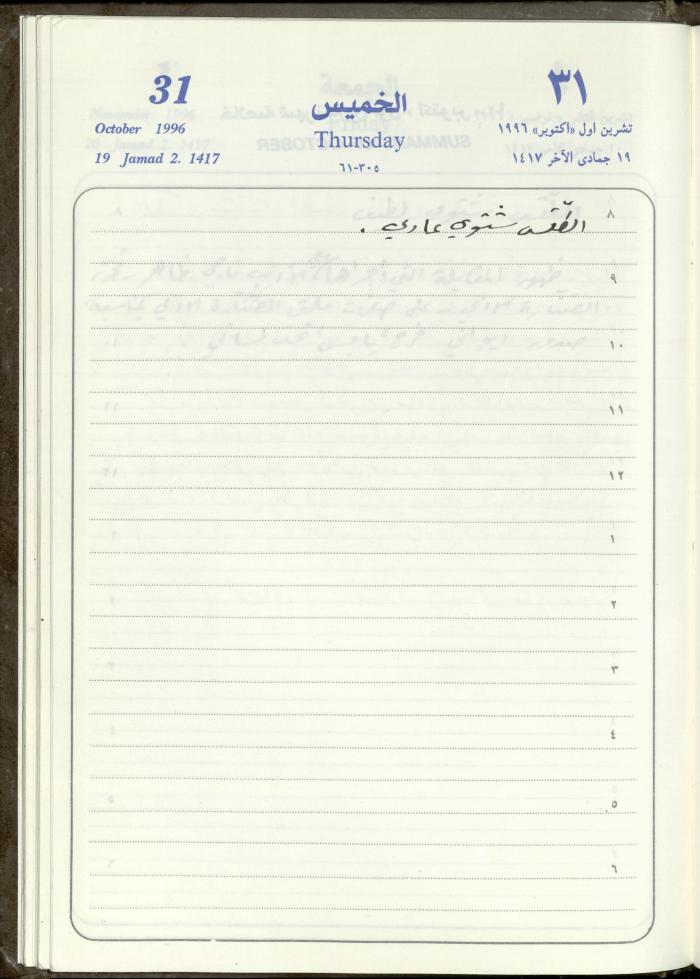 31 الخميس ٣١
October 1996 Thursday تشرين اول «اكتوبر» ١٩٩٦
19 Jamad 2. 1417 ٣٠٥-٦١ ١٩ جمادى الآخر ١٤١٧
٨ الطقس شتوي عادي .
٩
١٠
١١
١٢
١
٢
٣
٤
٥
٦